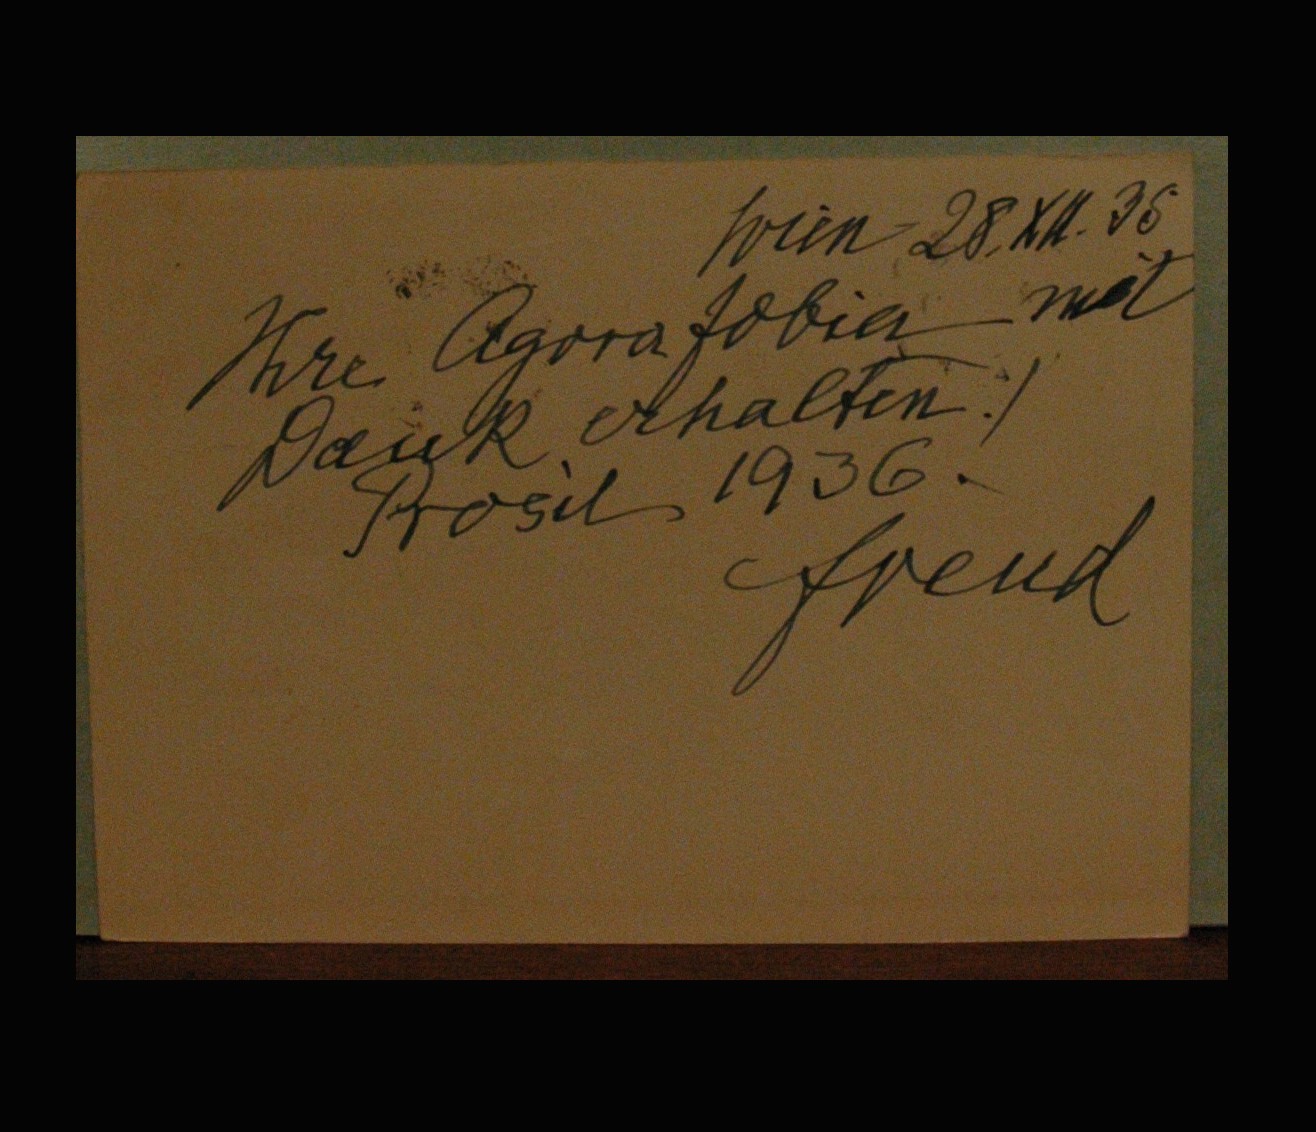 Wien 28.XII.35
Ihre Agorafobia mit
Dank erhalten!
Prosit 1936.
Freud